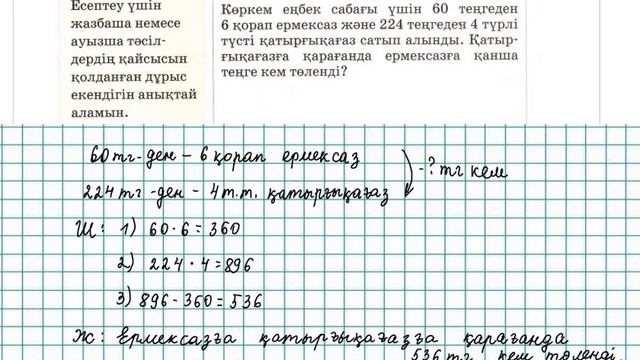 Есептеу үшін
жазбаша немесе
ауызша тәсіл-
дердің қайсысын
қолданған дұрыс
екендігін анықтай
аламын.
Көркем еңбек сабағы үшін 60 теңгеден
6 қорап ермексаз және 224 теңгеден 4 түрлі
түсті қатырғықағаз сатып алынды. Қатыр-
ғықағазға қарағанда ермексазға қанша
теңге кем төленді?
60 тг-ден – 6 қорап ермексаз
- ? тг кем
224 тг -ден - 4 т.т. қатырғықағаз
Ш: 1) 60·6=360
2) 224·4=896
3) 896-360=536
Ж: Ермексазға қатырғықағазға қарағанда
536 тг кем төленді.